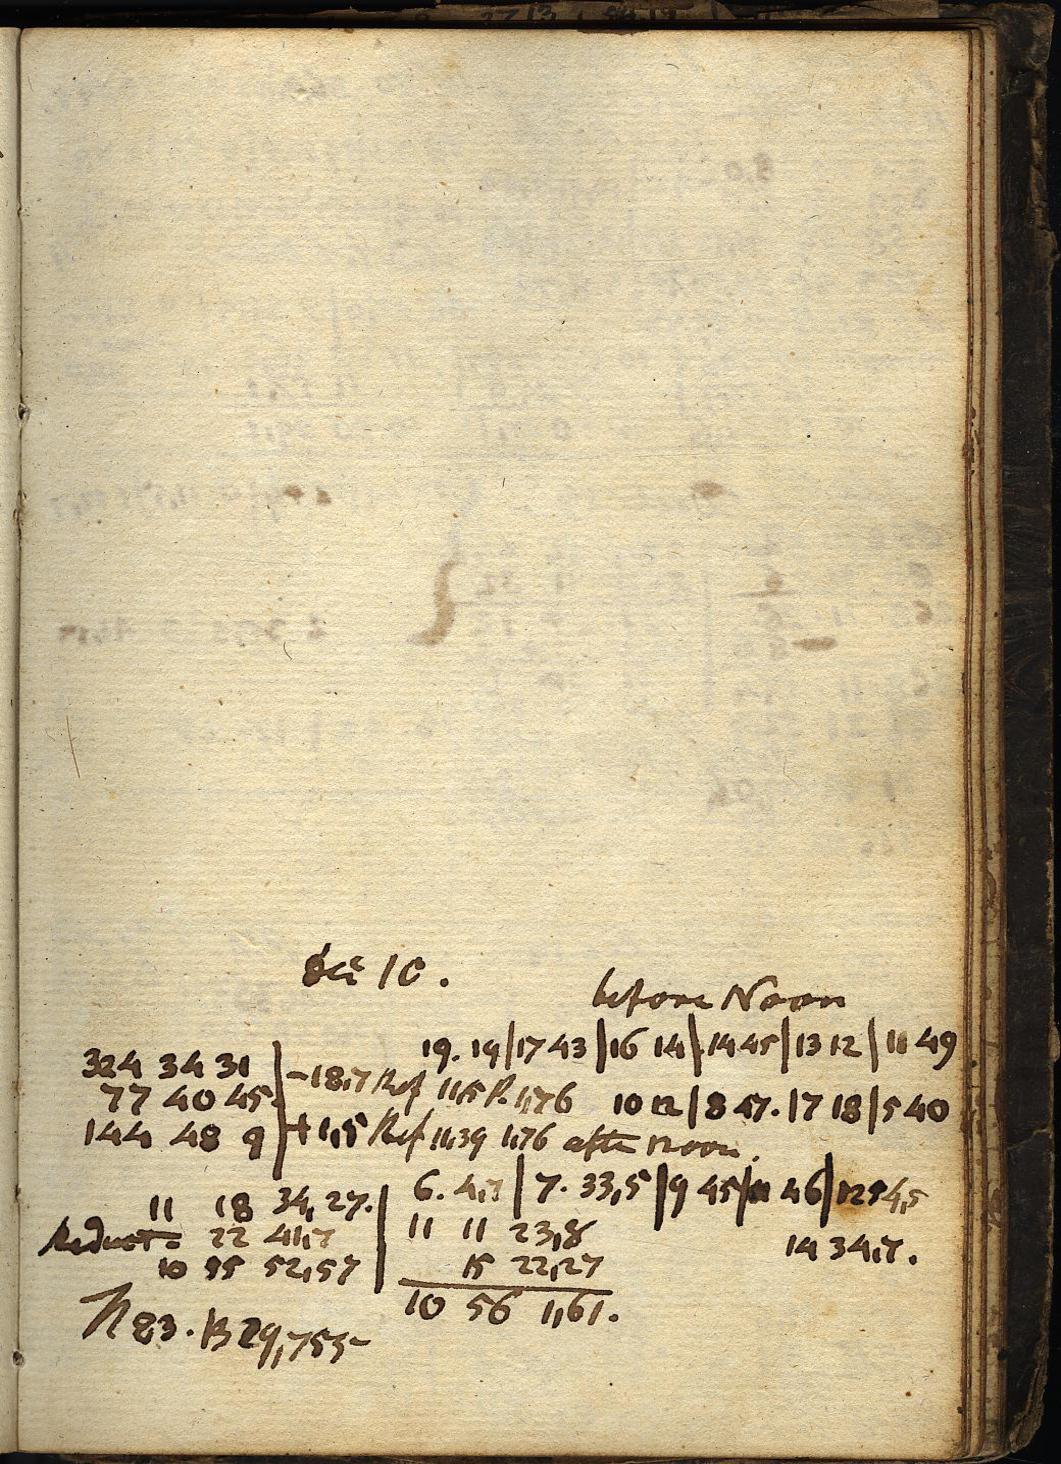 Dec 10.
before Noon
19. 19|17 43|16 14|14 45|13 12|11 49
324 34 31
-18,7 Ref 11,5 P. 1,76
77 40 45
10 12|8 47.|7 18|5 40
144 48 9
+1,5 Ref 11,39 1,76 after noon.
6. 4,7|7. 33,5|9 45|11 46|12 54,5
11 18 34,27.
11 11 23,8
14 34,7.
Reduct= 22 41,7
15 22,27
10 55 52,57
10 56 1,61.
83. B 29,755